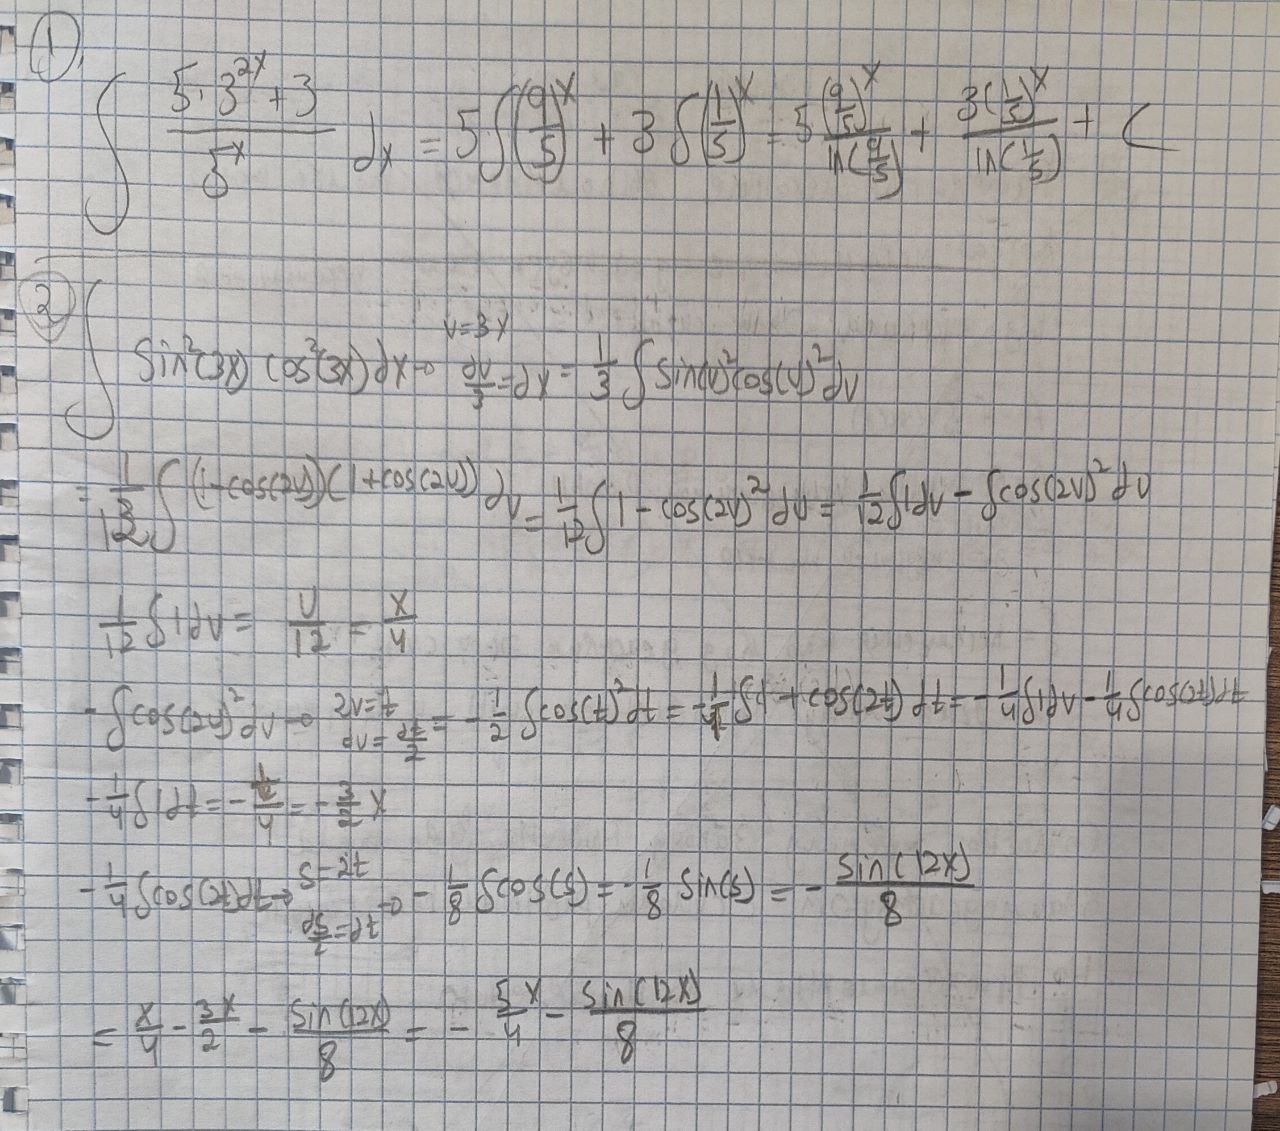 1) ∫ (5·3^{2x}+3)/5^x dx = 5∫(9/5)^x + 3∫(1/5)^x = 5 (9/5)^x/ln(9/5) + 3(1/5)^x/ln(1/5) + C
2) ∫ sin²(3x) cos²(3x) dx → u=3x du/3=dx = 1/3 ∫ sin(u)² cos(u)² du
= 1/12 ∫ (1-cos(2u))(1+cos(2u)) du = 1/12 ∫ 1-cos(2u)² du = 1/12 ∫1du - ∫cos(2u)² du
1/12 ∫1du = u/12 = x/4
-∫cos(2u)² du → 2u=t du=dt/2 = -1/2 ∫cos(t)² dt = -1/4 ∫1+cos(2t) dt = -1/4 ∫1du - 1/4 ∫cos(2t)dt
-1/4 ∫1dt = -t/4 = -3/2 x
-1/4 ∫cos(2t)dt → s=2t ds/2=dt → -1/8 ∫cos(s) = -1/8 sin(s) = - sin(12x)/8
= x/4 - 3x/2 - sin(12x)/8 = - 5x/4 - sin(12x)/8